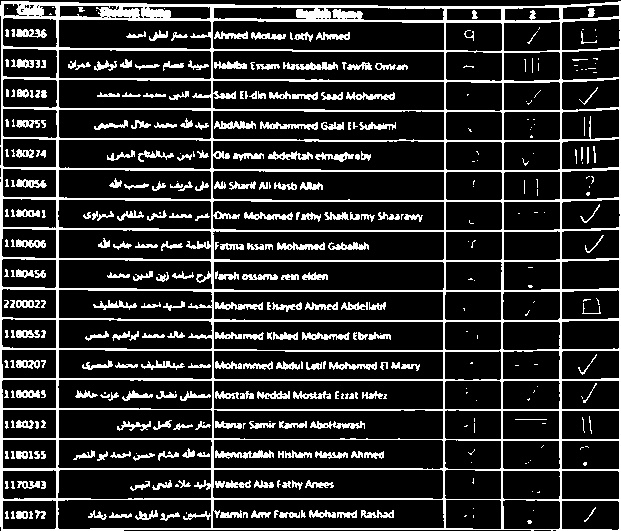 Code Student Name English Name 1 2 3
1180236 احمد معتز لطفى احمد Ahmed Motaaz Lotfy Ahmed 9 ✓ □
1180333 حبيبة عصام حسب الله توفيق عمران Habiba Essam Hassaballah Tawfik Omran – |||
1180128 سعد الدين محمد سعد محمد Saad El-din Mohamed Saad Mohamed ✓ ✓
1180255 عبد الله محمد جلال السحيمى AbdAllah Mohammed Galal El-Suhaimi ? ||
1180274 علا ايمن عبدالفتاح المغربى Ola ayman abdelftah elmaghraby ✓ |||||
1180056 على شريف على حسب الله Ali Sharif Ali Hasb Allah || ?
1180041 عمر محمد فتحى شلقامى شعراوى Omar Mohamed Fathy Shalkamy Shaarawy ✓
1180606 فاطمة عصام محمد جاب الله Fatma Issam Mohamed Gaballah ✓
1180456 فرح اسامه زين الدين محمد farah ossama zein elden
2200022 محمد السيد احمد عبداللطيف Mohamed Elsayed Ahmed Abdellatif ✓ □
1180552 محمد خالد محمد ابراهيم شمس Mohamed Khaled Mohamed Ebrahim
1180207 محمد عبداللطيف محمد المصرى Mohammed Abdul Latif Mohamed El Masry ✓
1180045 مصطفى نضال مصطفى عزت حافظ Mostafa Neddal Mostafa Ezzat Hafez ✓ ✓
1180212 منار سمير كامل ابوهواش Manar Samir Kamel AboHawash — ||
1180155 منه الله هشام حسن احمد ابو النصر Mennatallah Hisham Hassan Ahmed ?
1170343 وليد علاء فتحى انيس Waleed Alaa Fathy Anees
1180172 ياسمين عمرو فاروق محمد رشاد Yasmin Amr Farouk Mohamed Rashad ✓